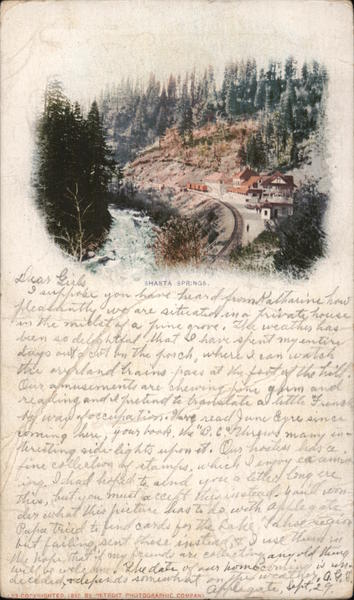 SHASTA SPRINGS.
Dear Girls
I suppose you have heard from Katharine how
pleasantly we are situated in a private house
in the midst of a pine grove. The weather has
been so delightful that I have spent my entire
days out on the porch, where I can watch
the overland trains pass at the foot of the hill.
Our amusements are chewing pine gum and
reading and I pretend to translate a little French
by way of occupation. Have read June Eyre since
coming here, your book, the throws many in-
teresting side-lights upon it. Our hostess has a
fine collection of stamps, which I enjoy examin-
ing. I had hoped to send you a letter long ere
this, but you must accept this instead. You'll won-
der what this picture has to do with Applegate.
Papa tried to find cards for the Lake Tahoe region
but failing, sent these instead, & I use them in
the hope that if any friends are collecting any old thing
will be welcome. The date of our homecoming is un-
decided, depends somewhat on the weather.
Applegate, Sept. 29
COPYRIGHTED, BY DETROIT PHOTOGRAPHIC COMPANY.